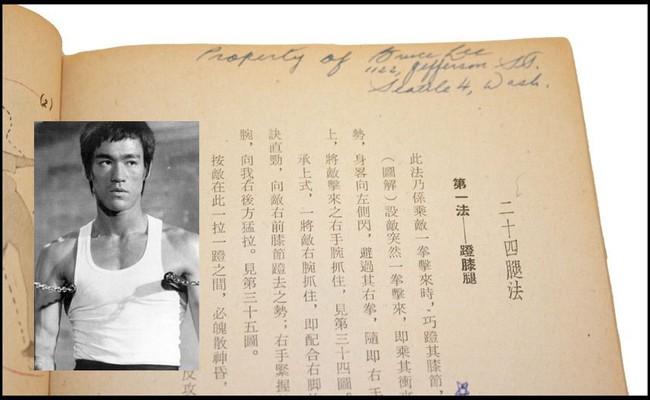 Property of Bruce Lee
1122, Jefferson St.
Seattle 4, Wash.
(2)
二十四腿法
第一法——蹬膝腿
此法乃係乘敵一拳擊來時，巧蹬其膝節，
(圖解)設敵突然一拳擊來，即乘其衝來
勢，身畧向左側閃，避過其右拳，隨即右手
上，將敵擊來之右手腕抓住，見第三十四圖。
承上式，一將敵右腕抓住，即配合右脚
訣直勁，向敵右前膝節蹬去之勢；右手緊握
腕，向我右後方猛拉。見第三十五圖。
按敵在此一拉一蹬之間，必魄散神昏，
反攻